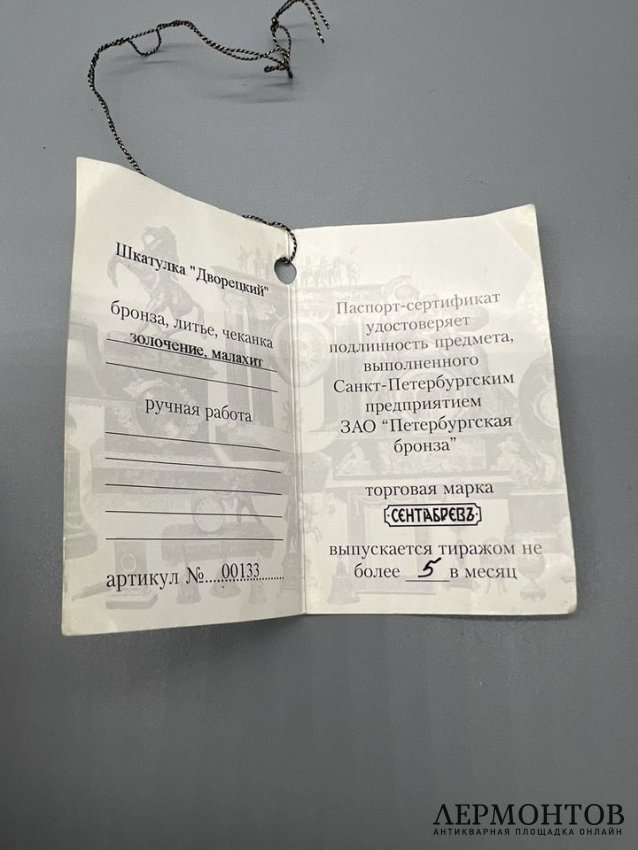 Шкатулка "Дворецкий"
бронза, литье, чеканка
золочение, малахит
ручная работа
артикул №....00133
Паспорт-сертификат
удостоверяет
подлинность предмета,
выполненного
Санкт-Петербургским
предприятием
ЗАО “Петербургская
бронза”
торговая марка
·СЕНТАБРЕВЪ·
выпускается тиражом не
более 5 в месяц
ЛЕРМОНТОВ
АНТИКВАРНАЯ ПЛОЩАДКА ОНЛАЙН